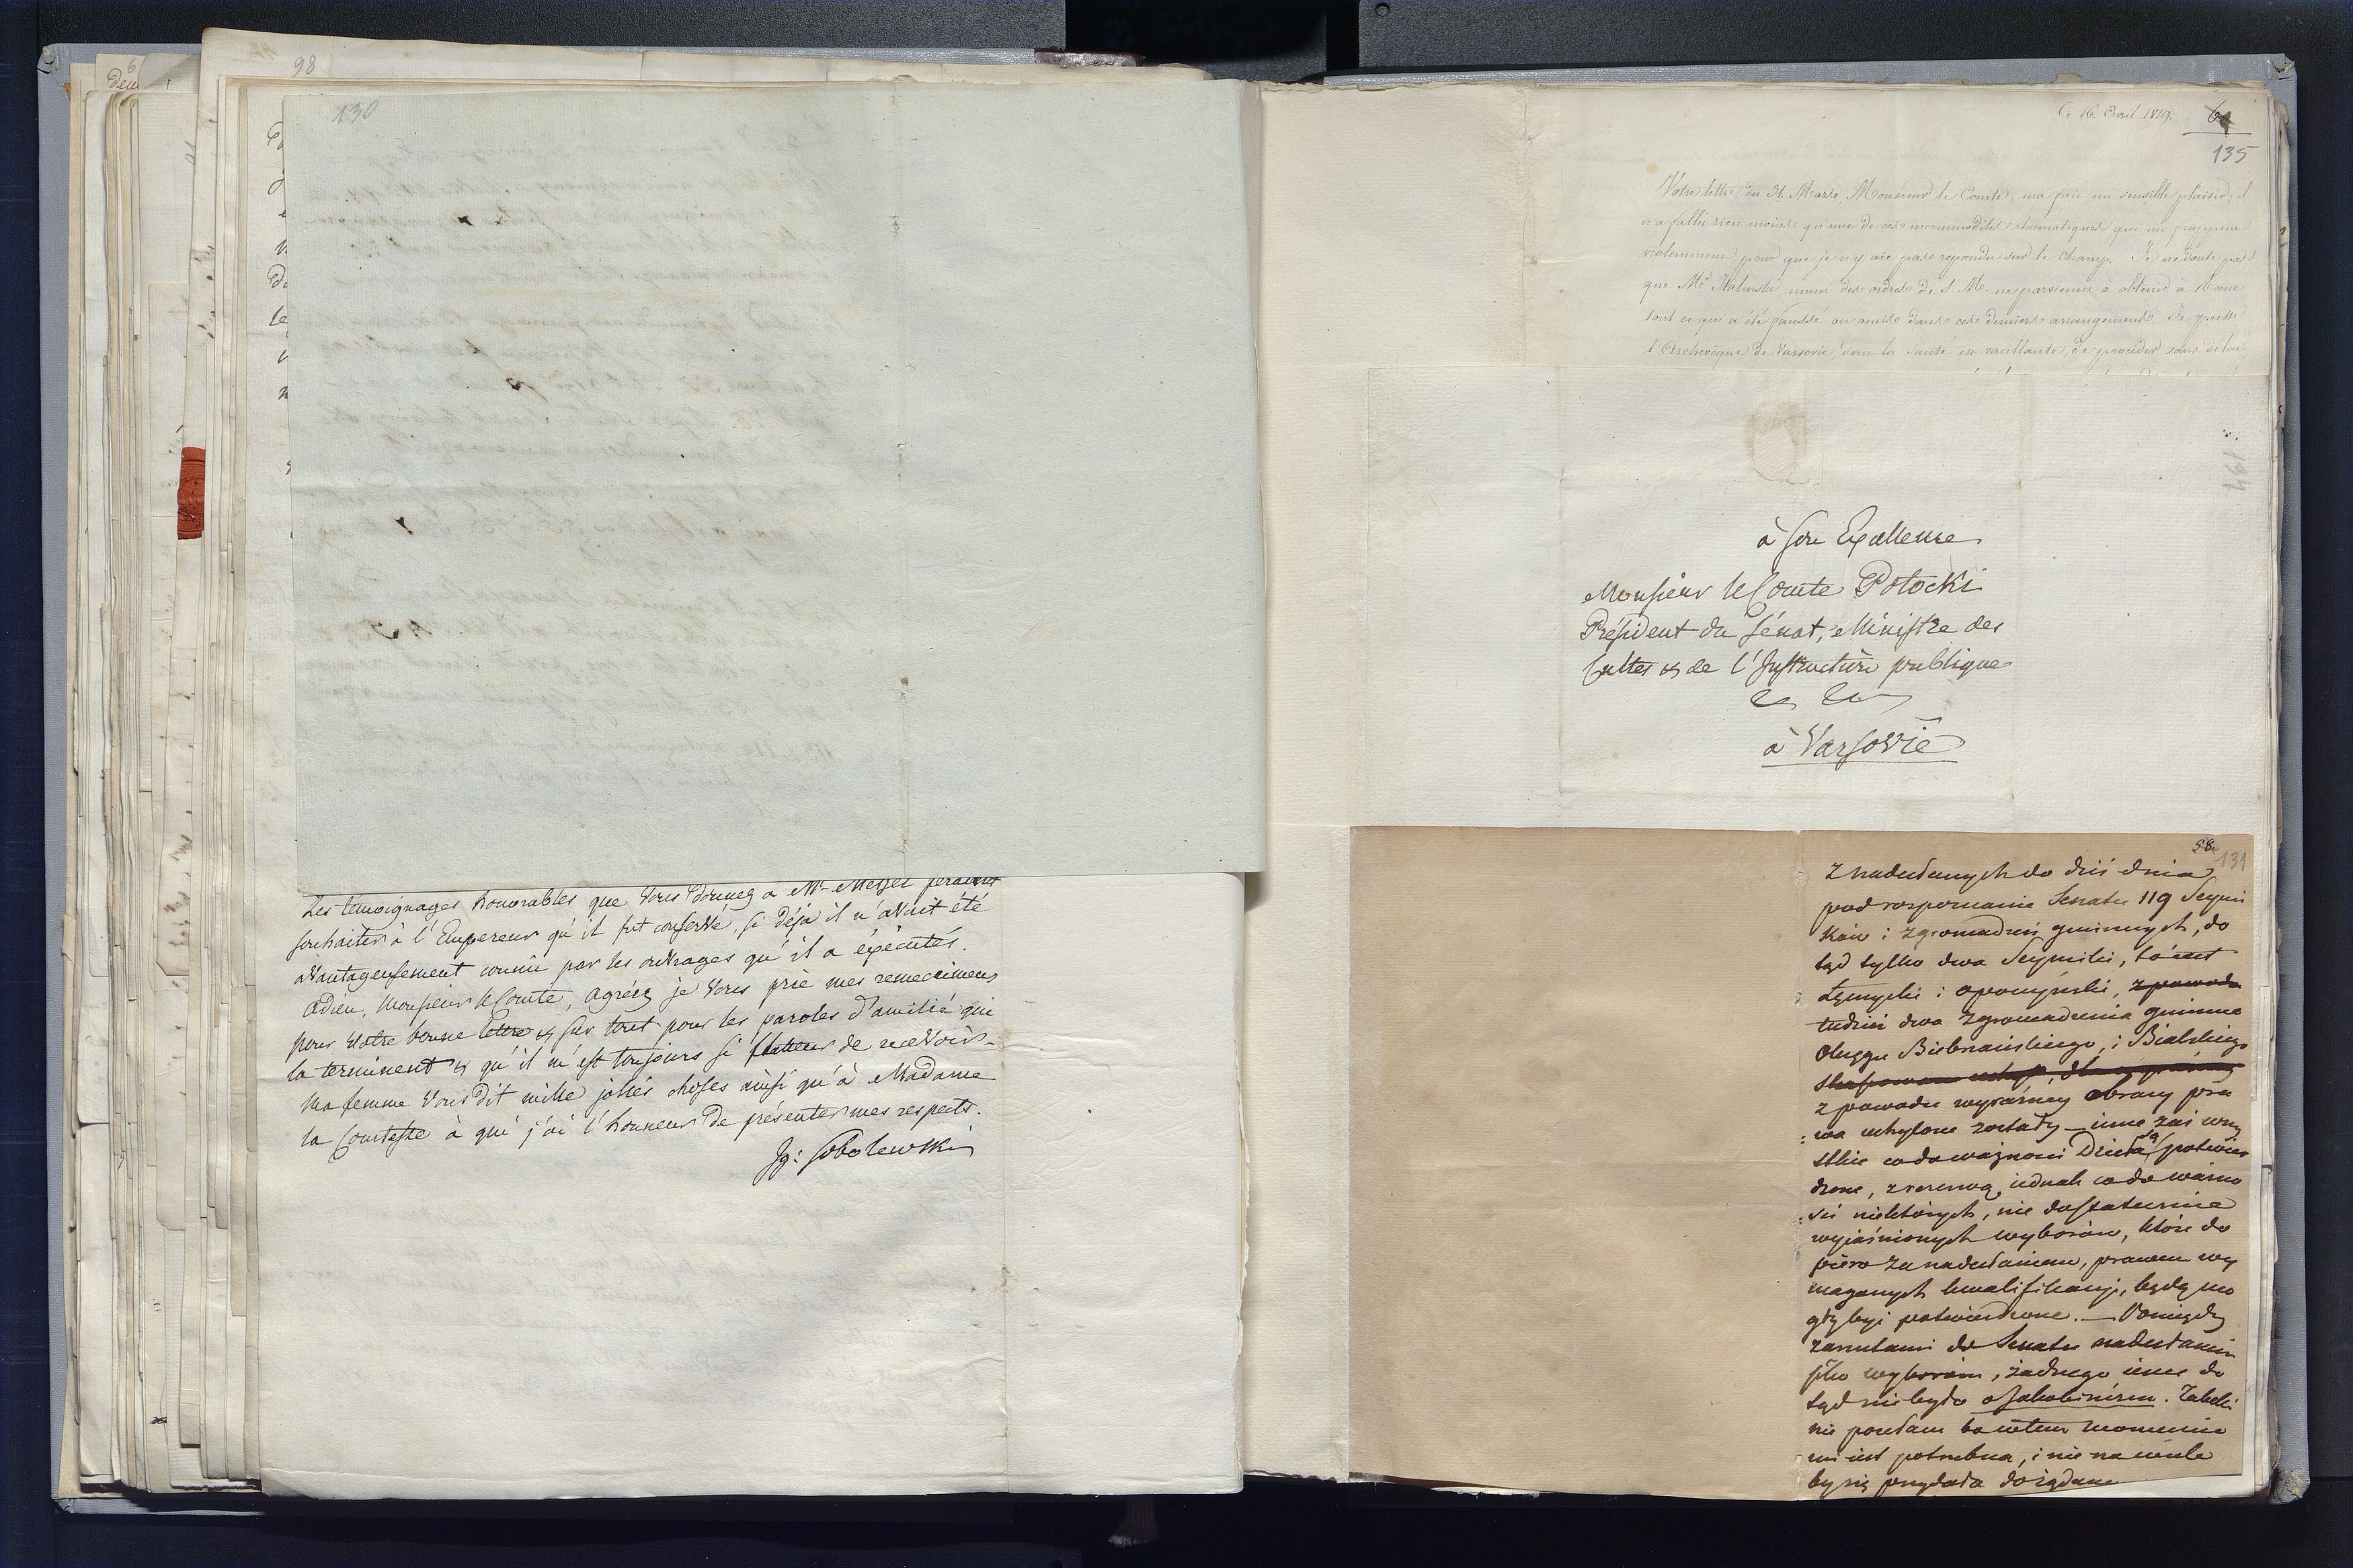 98
130
Les temoignages honorables que Vous donnez a Mr Meyzel feraient
souhaiter à l'Empereur qu'il fut conservé, si déja il n'avait été
avantageusement connu par les ouvrages qu'il a éxécutés.
Adieu, Monsieur le Comte, agréez je Vous prie mes remercimens
pour Votre bonne lettre & sur tout pour les paroles d'amitié qui
la terminent & qu'il m'est toujours si flatteur de recevoir.
Ma femme Vous dit mille jolies choses ainsi qu'à Madame
la Comtesse à qui j'ai l'honneur de présenter mes respects.
Ig: Sobolewski
Ce 16. Avril 1819.
135
Votre lettre du 31. Mars, Monsieur le Comte, m'a fait un sensible plaisir; il
n'a fallu rien moins qu'une de ces incommodités rhumatiques qui me frappent
violemment, pour que je n'y aie pas repondu sur le champ. Je ne doute pas
que Mr muni des ordres de S. M. ne parvienne à obtenir a Rome
tout ce qui a été faussé ou omis dans ces derniers arrangements. Je presse
l'Archevêque de Varsovie, dont la santé est vacillante, de proceder sans delai
134
à Son Excellence
Monsieur le Comte Potocki
Président du Sénat, Ministre des
Cultes & de l'Instruction publique
à Varsovie
58.
131
Z nadesłanych do dziś dnia
pod rozpoznanie Senatu 119 Seymi
ków i zgromadzeń gminnych, do
tąd tylko dwa Seymiki,
i opoczyński,
tudzież dwa zgromadzenia gminne
Okręgu i Bialskiego
z powodu wyraźney obrazy pra
wa uchylone zostały – inne zaś wszy
stkie co do ważności Dzieła są potwier
dzone, z rezerwą jednak co do ważno
ści niektórych, nie dostatecznie
wyjaśnionych wyborów, które do
piéro za nadesłaniem, prawem wy
maganych kwalifikacji, będą mo
gły być potwierdzone. — Pomiędzy
zarzutami do Senatu nadesłanemi
wyborom, żadnego ieszcze do
tąd nie było o Jakobinizm. Tabelli
nie posełam bo w tem momencie
mi iest potrzebna, i nie na wiele
by się przydała do żądane